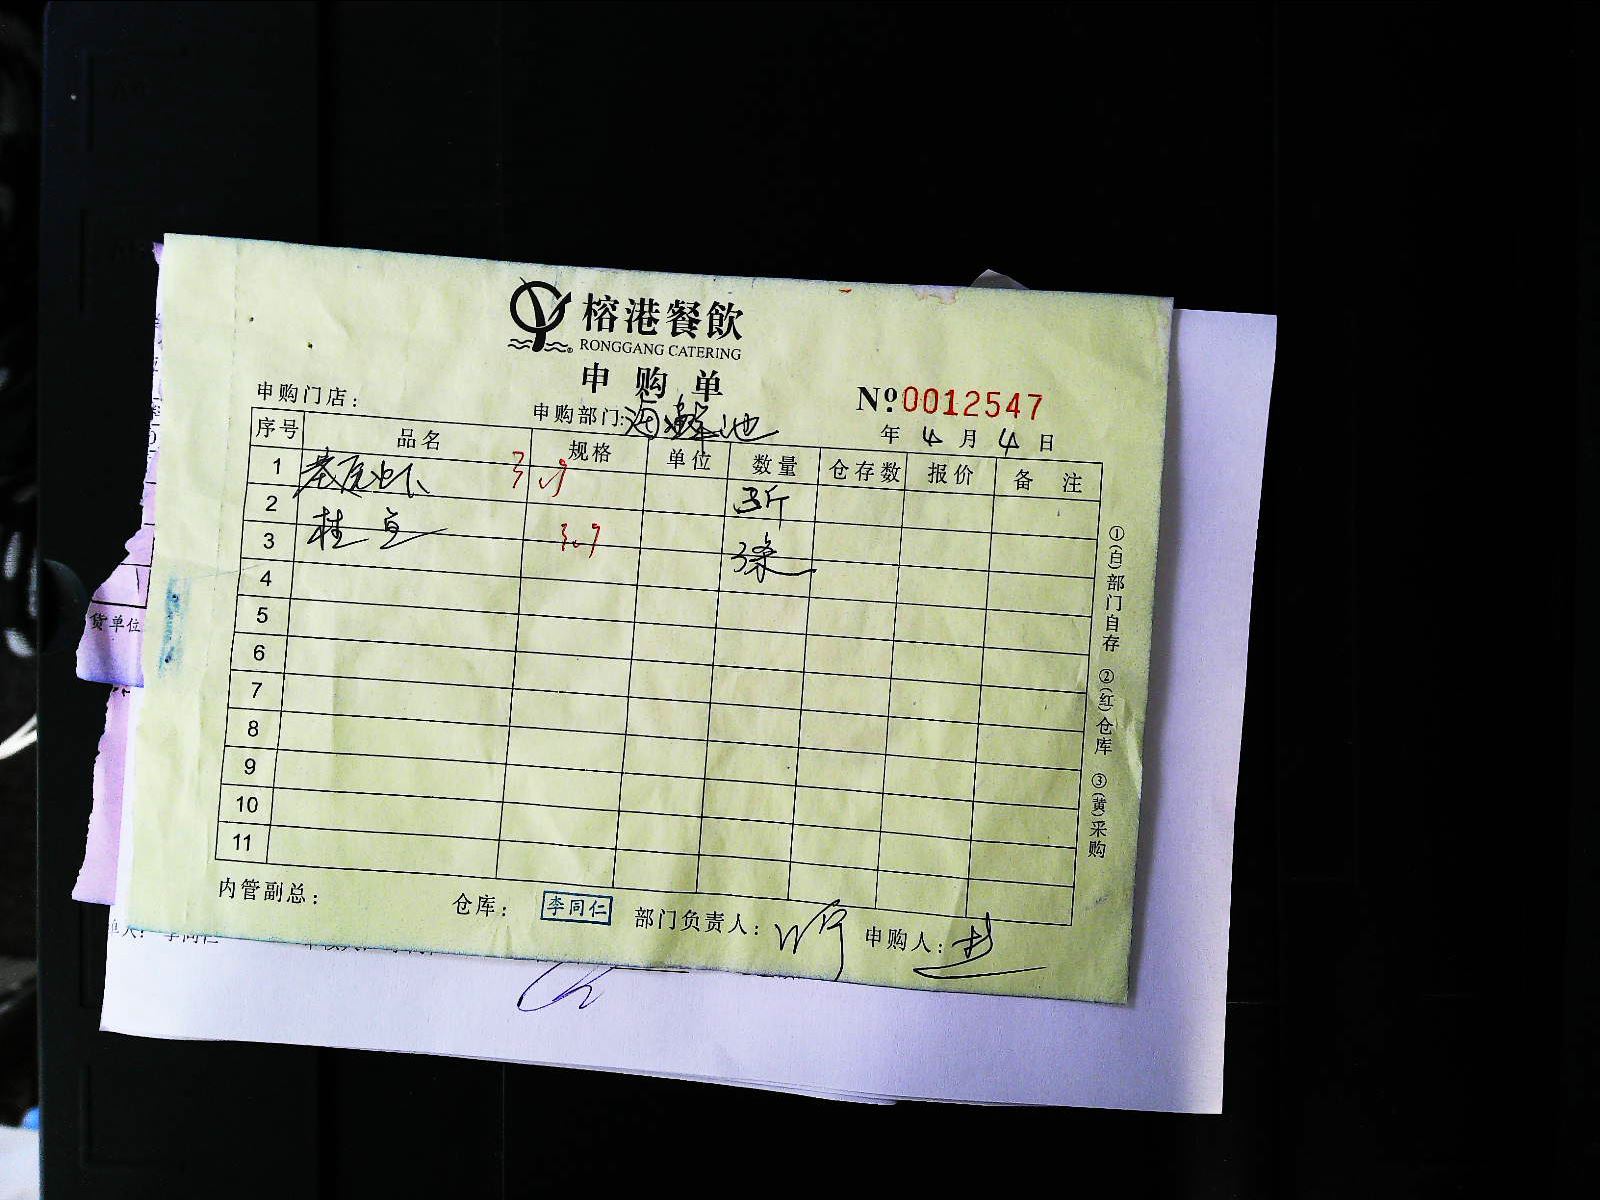 榕港餐飲
RONGGANG CATERING
申购单
申购门店：
申购部门：海鲜池
Nº 0012547
年 4 月 4 日
序号 品名 规格 单位 数量 仓存数 报价 备注
1 基尾虾 3斤
2
3 桂鱼 3条
4
5
6
7
8
9
10
11
内管副总： 仓库： 李同仁 部门负责人： 申购人：
①(白)部门自存 ②(红)仓库 ③(黄)采购
货单位